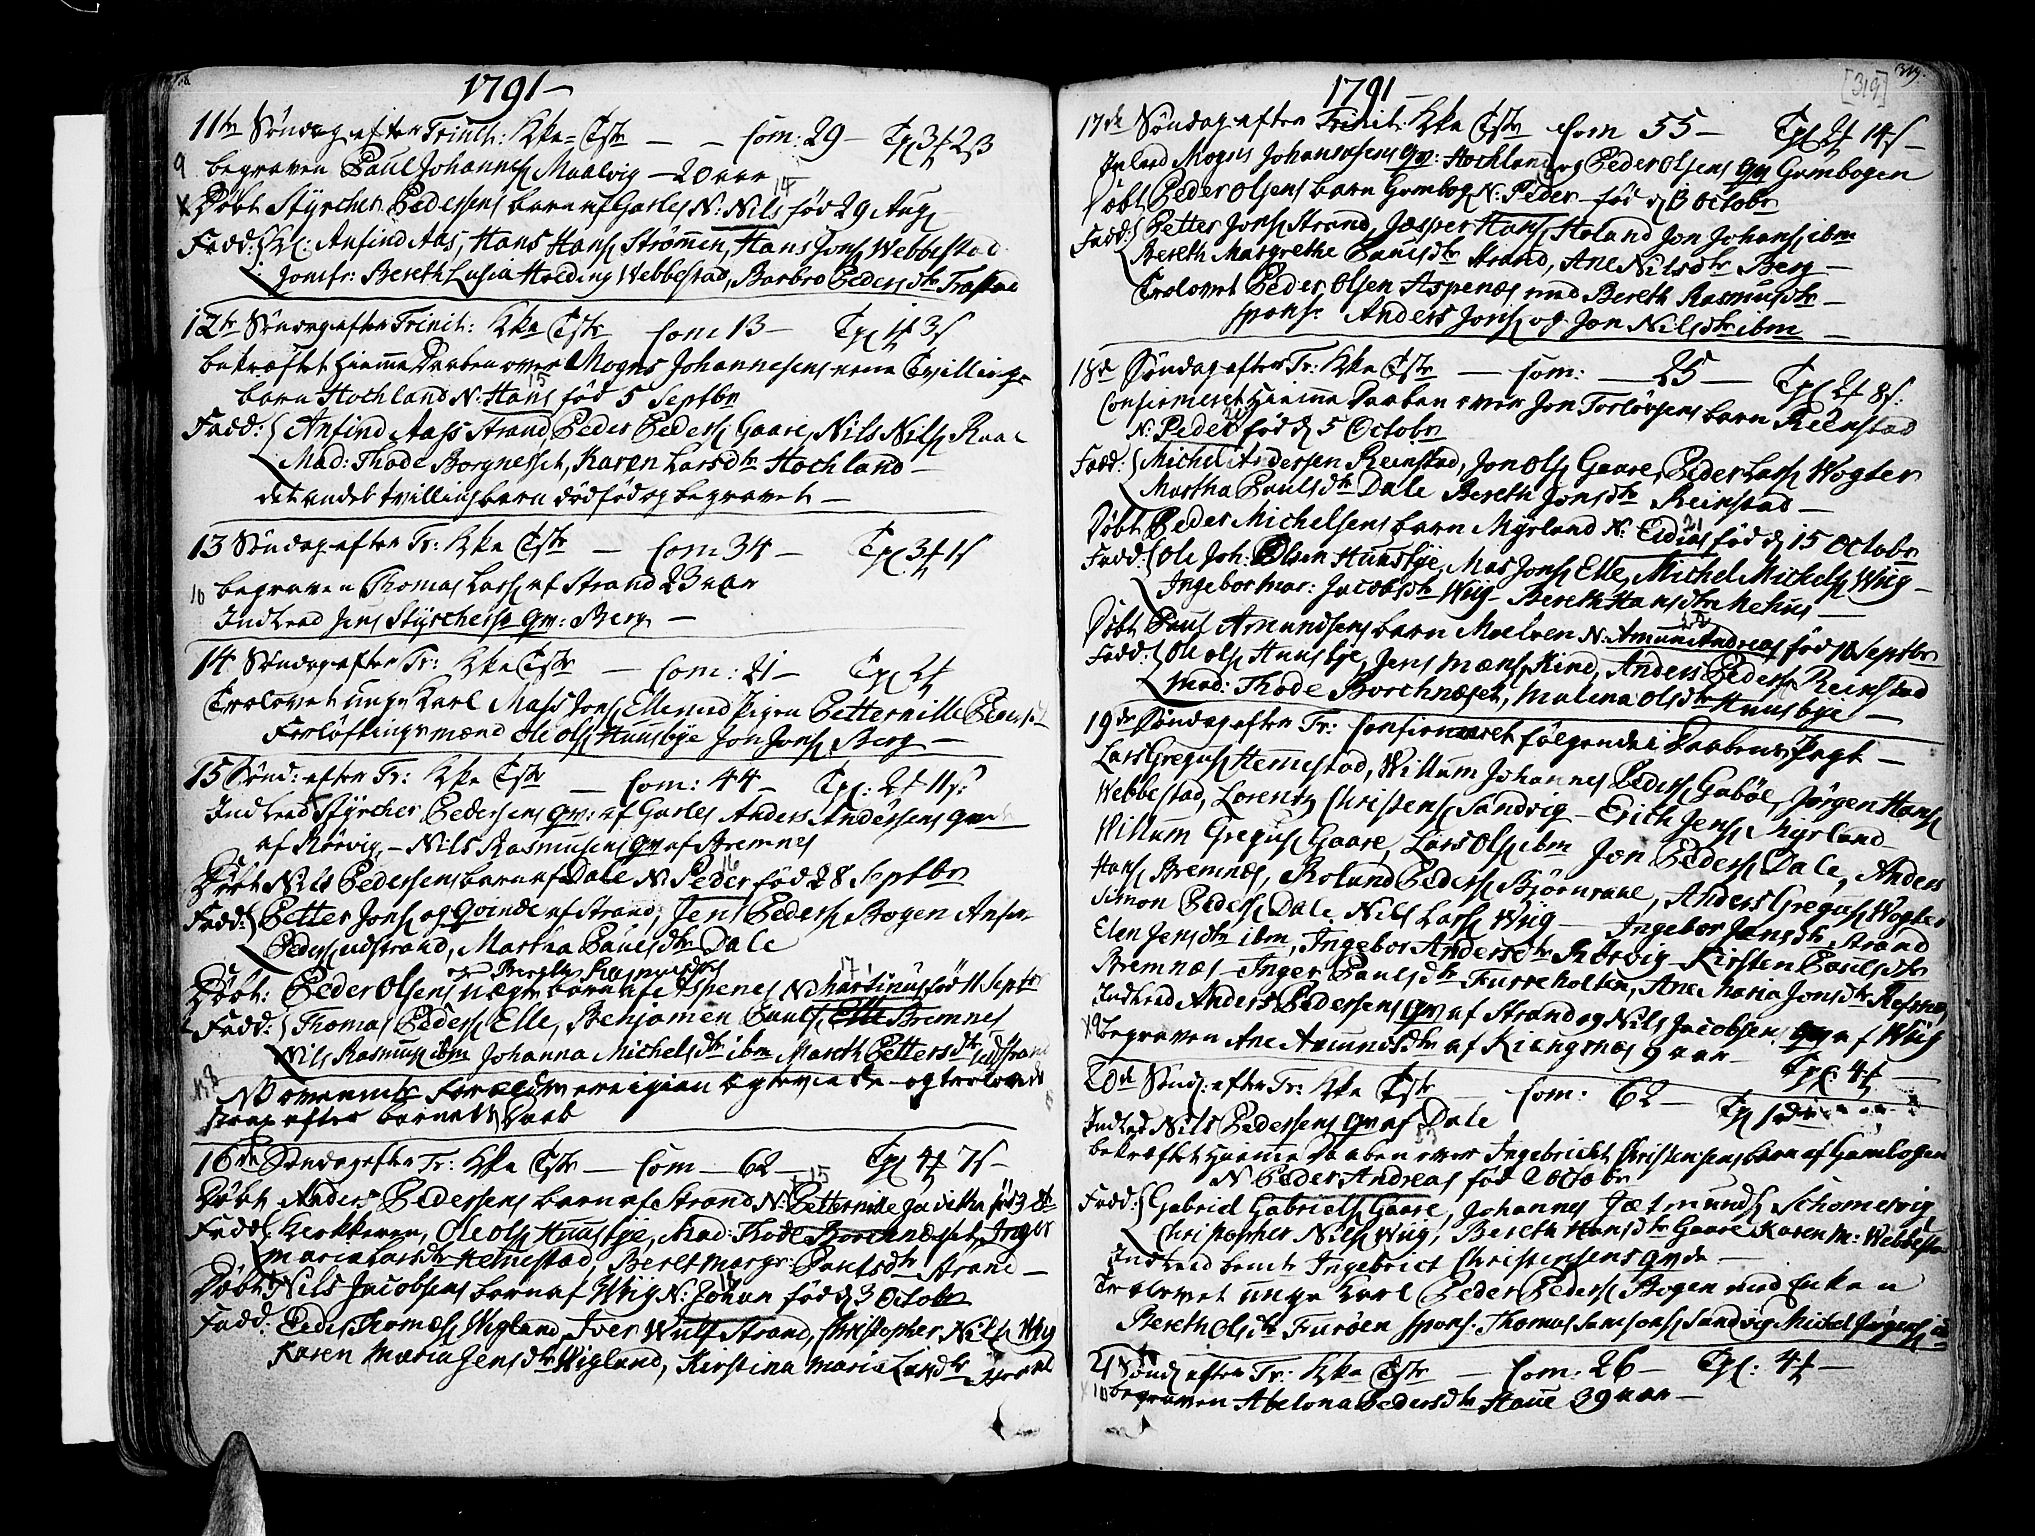 1791 –
11te Søndag efter Trinit: Hke Tste — — Com: 29 – Tpl 3f 2ß
9 begraven Paul Johannes. Maalvig – 20 aar
Døbt Styrcher Pedersens barn af Garles N: Nils fød 29 Aug
14
Fadd: Kl: Anfind Aas, Hans Hans. Strømmen, Hans Jons. Webbestad
Jomfr: Bereth Lusia Holding Webbestad, Barbro Pedersdtr Træstad
12te Søndag efter Trinit: Hke Tste Com 13 – Tpl 1f 3s
bekræftet Hiemme Daaben over Mogns Johannesens eene Tvillinge
barn Hochland N: Hans fød 5 Septbr
15
Fadd: Anfind Aass Strand, Peder Peders. Gaare, Nils Nils. Raae
Mad: Thode Borgneset, Karen Larsdtr Hochland –
det andet tvilling barn dødfød og begravet –
13 Søndag efter Tr: Hke Tste — Com 34 – Tpl 3f 1s
10 begraven Thomas Lars. af Strand 23 aar
Indlead Jens Styrchers. Qv: Berg –
14 Søndag efter Tr: Hke Tste — Com: 21 – Tpl 2f
Trolovet unge Karl Mass Jons. Elle med Pigen Petternille Peders.
Forløftingsmænd Ole Ols. Huusbye Jon Jons. Berg –
15 Sønd: efter Tr: Hke Tste — Com: 44 – Tpl: 2f 11s:
Indlead Styrcher Pedersens Qv: af Garles Anders Andersens Qvinde
af Rørvig, – Nils Rasmusens Qv af Bremnes
16
Døbt Nils Pedersens barn af Dale N: Peder fød 28 Septbr
Fadd: Petter Jons. og Qvinde af Strand, Jens Peders. Bogen Ansen
Peders. udstrand, Martha Paulsdtr Dale
og Bergte Rasmusdtr 17
Døbt: Peder Olsens uægte barn af Aspenes N: Martinus fød 11 Septbr
Fadd: Thomas Peders. Elle, Benjamen Pauls. Elle Bremnes
Nils Rasmus. ibm Johanna Michelsdtr ibm Mareth Pettersdtr udstrand
N8 ovennte Forældre ere igien og trolovede
strax efter barnets Daab
16de Søndag efter Tr: Hke Tste — Com — 62 – Tpl 4f 7s –
15
Døbt Anders Pedersens barn af Strand N: Petternille Judithe fød
Fadd: Klokkeren, Ole Ols. Huusbye, Mad: Thode Borchneset, Inger
Maria Larsdtr Hemestad, Beret Margr: Paulsdtr Strand –
18
Døbt Nils Jacobsens barn af Wiig N: Johan fød d 3 Octobr
Fadd: Eedes Thomæs. Wigland, Iver Wulf Strand, Christopher Nils. Wiig
Karen Maria Jensdtr Wigland, Kirstina Maria Larsdtr
1791 –
319.
[319]
17de Søndag efter Trinit: Hke Tste Com 55 – Tpl 2f 14s –
Inlead Mogns Johannesens Qv: Hochland og Peder Olsens Qv Gumbogen
Døbt Peder Olsens barn Gumbog N: Peder fød d 13 Octobr
Fadd: Petter Jons. Strand, Jæsper Hans. Holand Jon Johans. ibm
Bereth Margrethe Paulsdtr Strand, Ane Nilsdtr Berg –
Trolovet Peder Olsen Aspenæs med Bereth Rasmusdtr –
spons: Anders Jons. og Jon Nils. ibm –
18de Søndag efter Tr: Hke Tste — Com: — 25 – Tpl 2f 8s:
Confirmeret Hiemme Daaben over Jon Torløfsens barn Reenstad
N: Peder fød d 5 Octobr
Fadd: Michel Andersen Reinstad, Jon Ols. Gaare, Peder Lars. Wogter
Martha Paulsdtr Dale Bereth Jonsdtr Reinstad –
21
Døbt Peder Michelsens barn Myrland N: Eidias fød d 15 Octobr
Fadd: Ole Joh: Olsen Huusbye, Mas Jons. Elle, Michel Michels. Wiig –
Ingebor Mar: Jacobsdtr Wiig – Bereth Hansdtr Melhus –
Døbt Paul Amundsens barn Moelven N: Amun Andreas fød 18 Septbr
Fadd: Ole Ols. Huusbye, Jens Mæns. Kind, Anders Peders. Reinstad
Mad: Thode Borchnæset, Malena Olsdtr Huusbye –
19de Søndag efter Tr: Confirmeret følgende i Daabens Pagt –
Lars Gregus. Hemestad, Willum Johannes Peders. Gabøe, Jørgen Hans.
Webbestad, Lorentz Christens. Sandvig – Erich Jens. Myrland –
Willum Gregus. Gaare, Lars Ols. ibm Jon Peders. Dale, Anders
Hans. Bremnæs, Roland Peders. Bjørnraae, Anders Gregus. Wogter
Simon Peders. Dale Nils Lars. Wiig – Ingebor Jansdtr Strand
Elen Jensdtr ibm, Ingebor Andersdtr Rørvig – Kirsten Paulsdtr
Bremnæs – Inger Paulsdtr Furreholten, Ane Maria Jonsdtr Refsnæs,
Indlead Anders Pedersens Qv af Strand og Nils Jacobsen Qv af Wiig
9 begraven Ane Amundsdtr af Kiengsnæs 9 aar – Tpl 4f –
20de Sønd: efter Tr: Hke Tste — Com: 62 – Tpl
Indlead Nils Pedersens Qv af Dale
23
bekræftet Hiemme Daaben over Ingebricht Christensens barn af Gumbogen
N Peder Andreas fød 2 Octobr
Fadd: Gabriel Gabriels. Gaare, Johannes Jætmunds. Schomesvig
Christopher Nils. Wiig, Bereth Hansdtr Gaare Karen M: Webbestad
Indlead bemte Ingebrict Christensens Qvde –
Trolovet unge Karl Peder Peders. Bogen med Enken
Bereth Olsdtr Furøen spons: Thomas Samsons. Sandvig Michel Jørgens.
21 Sønd efter Tr: Hke Tste — Com: 26 – Tpl: 4f –
10 begraven Abelona Pedersdtr Haue 39 aar –